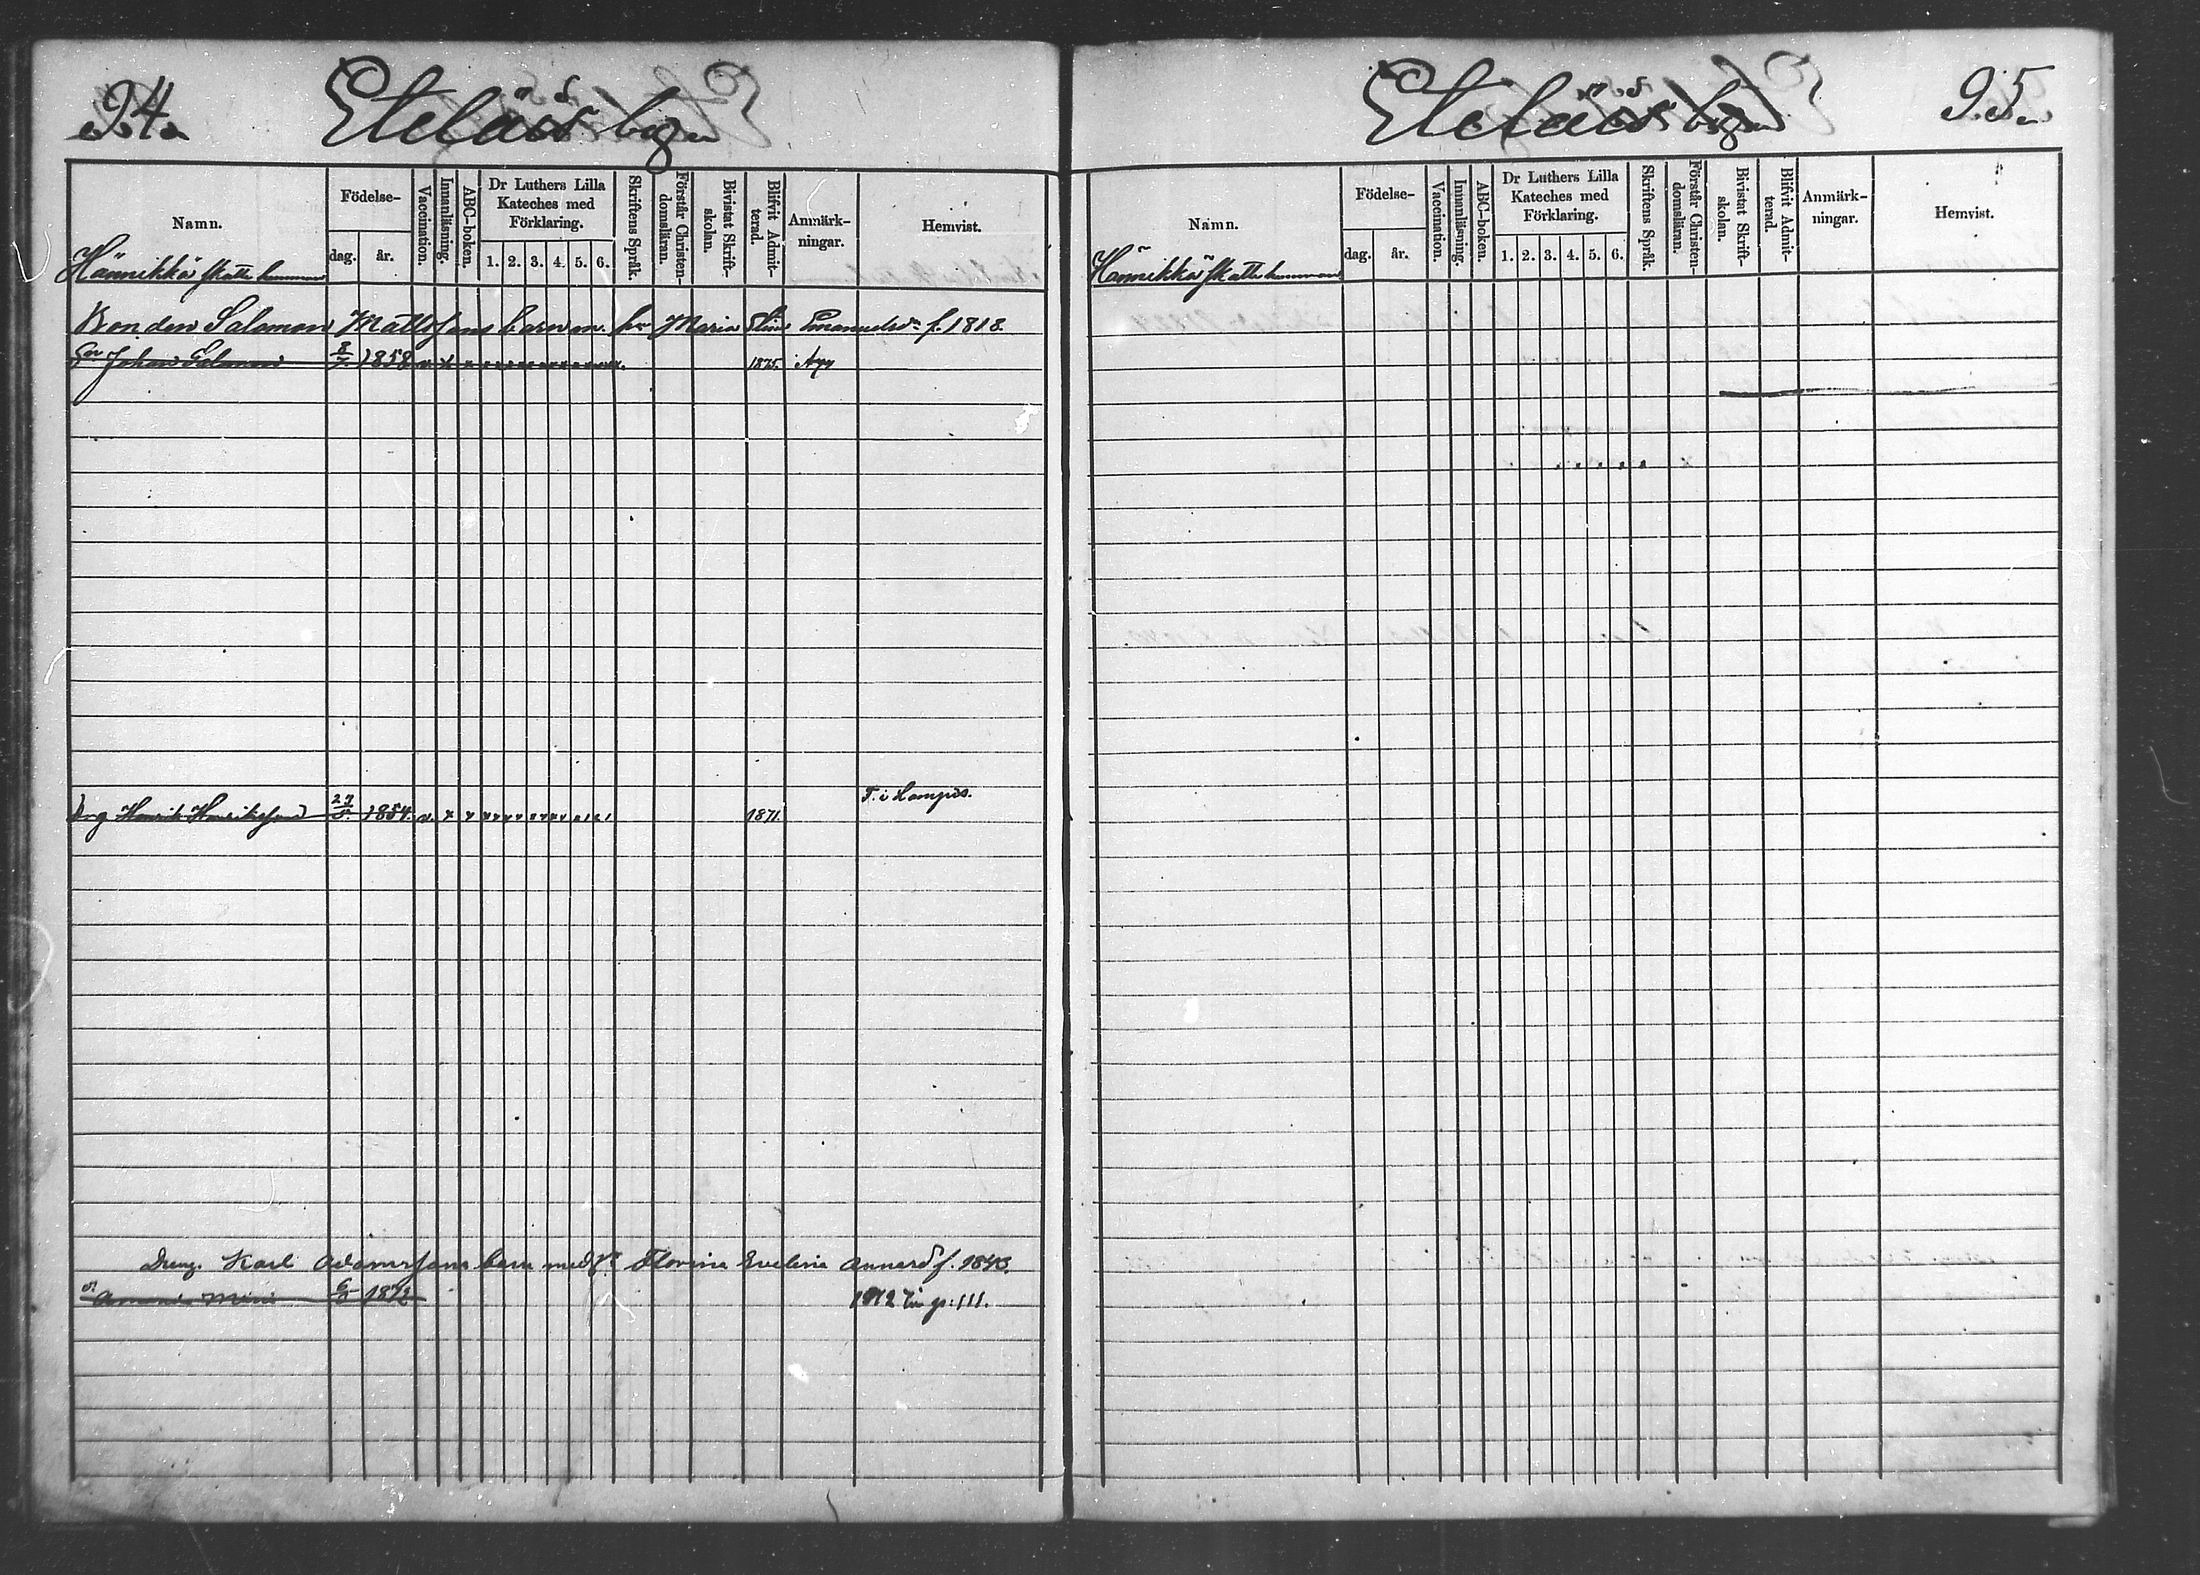 94.
Eteläös by
Namn.
Födelse-
dag.
år.
Vaccination.
Innanläsning.
ABC-boken.
Dr Luthers Lilla Kateches med Förklaring.
1. 2. 3. 4. 5. 6.
Skriftens Språk.
Förstår Christen-domsläran.
Bivistat Skrift-skolan.
Blifvit Admit-terad.
Anmärk-ningar.
Hemvist.
Hännikkä skatte hemman
Bonden Salomon Mattssons barn m. hu Maria Stina Emanuelsdr f. 1818.
Son Johan Salomon 8/7 1858 1875.
Drg Henrik Henriksson 1854. 1871. T. i Kampis.
Dreng. Karl Adamssons barn med Hu Florina Evelina Annasd f. 1843.
1872 in p: 111.
95.
Eteläös by
Namn.
Födelse-
dag.
år.
Vaccination.
Innanläsning.
ABC-boken.
Dr Luthers Lilla Kateches med Förklaring.
1. 2. 3. 4. 5. 6.
Skriftens Språk.
Förstår Christen-domsläran.
Bivistat Skrift-skolan.
Blifvit Admit-terad.
Anmärk-ningar.
Hemvist.
Hännikkä skatte hemman